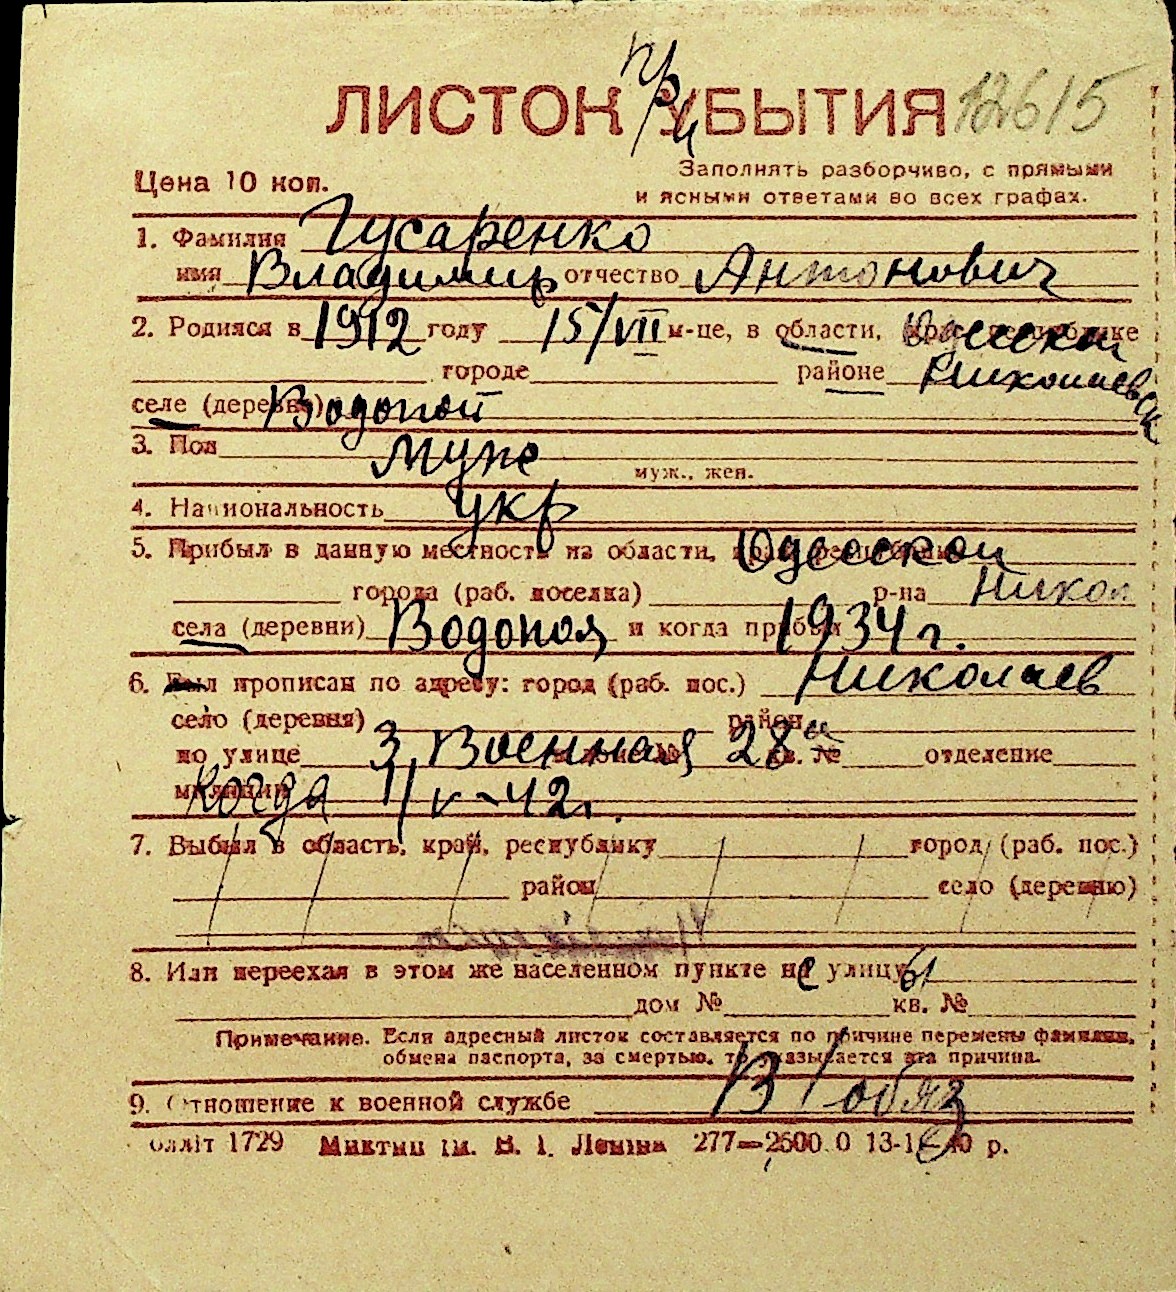 ЛИСТОК при УБЫТИЯ 12615
Цена 10 коп.
Заполнять разборчиво, с прямыми
и ясными ответами во всех графах.
1. Фамилия Гусаренко
имя Владимир отчество Антонович
2. Родился в 1912 году 15/VII м-це, в области, крае, республике Одесской
городе районе Николаевск
селе (деревне) Водопой
3. Пол муж
муж., жен.
4. Национальность укр
5. Прибыл в данную местность из области, края, республики Одесской
города (раб. поселка) р-на Никол
села (деревни) Водопоя и когда прибыл 1934 г.
6. Был прописан по адресу: город (раб. пос.) Николаев
село (деревня) район
по улице 3 Военная 28а кв. № отделение
милиции Когда 1/V-42г.
7. Выбыл в область, край, республику город (раб. пос.)
район село (деревню)
8. Или переехал в этом же населенном пункте не улицы
дом № кв. №
Примечание. Если адресный листок составляется по причине перемены фамилии,
обмена паспорта, за смертью, то указывается эта причина.
9. Отношение к военной службе В/обяз
1729 ім. В. І. Леніна 277—2600.0